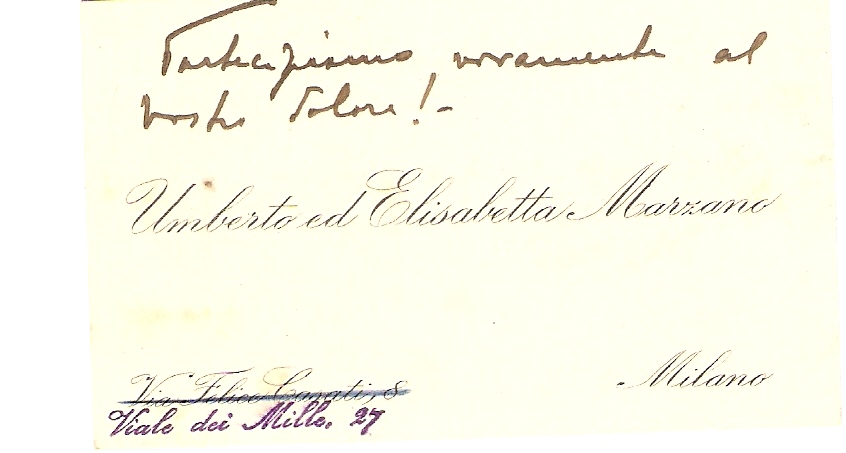 Partecipiamo vivamente al
vostro dolore! -
Umberto ed Elisabetta Marzano
Via Felice Casati, 8
Milano
Viale dei Mille, 27